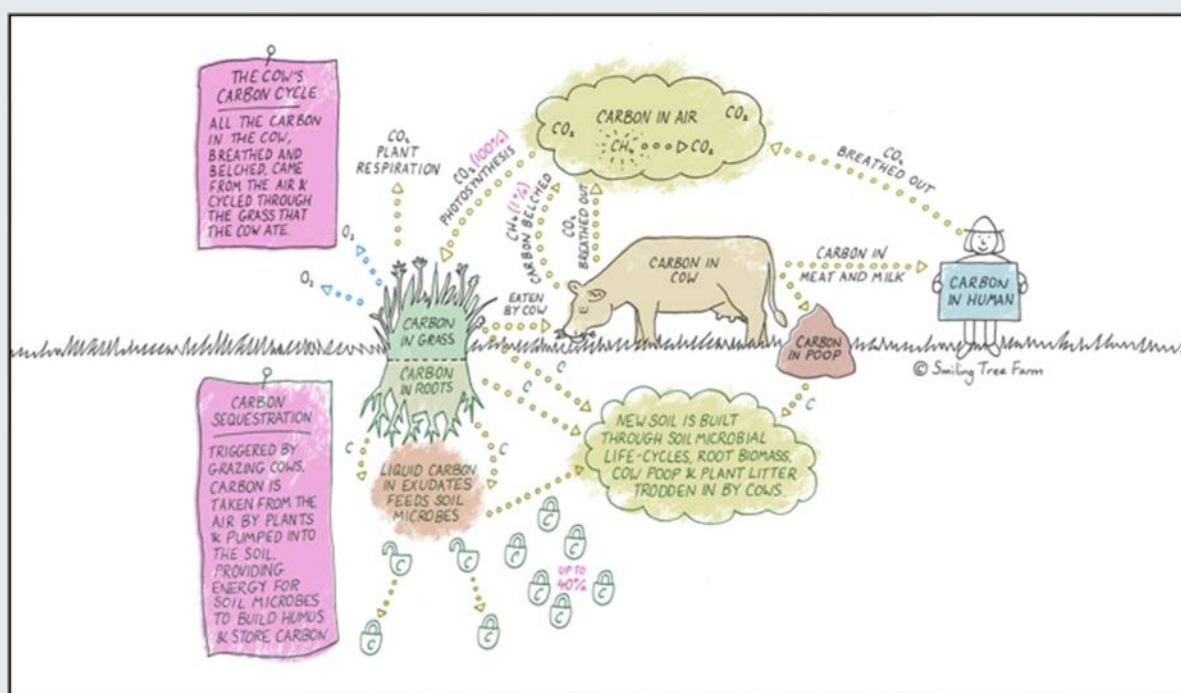 THE COW'S
CARBON CYCLE
ALL THE CARBON
IN THE COW,
BREATHED AND
BELCHED, CAME
FROM THE AIR &
CYCLED THROUGH
THE GRASS THAT
THE COW ATE.
O₂
O₂
CO₂
PLANT
RESPIRATION
CO₂ (100%)
PHOTOSYNTHESIS
CH₄ (1%)
CARBON BELCHED
CO₂
BREATHED OUT
CARBON IN AIR
CO₂
CO₂
CH₄ CO₂
CO₂
BREATHED OUT
CARBON IN
COW
CARBON IN
MEAT AND MILK
CARBON
IN HUMAN
EATEN
BY COW
CARBON
IN GRASS
CARBON
IN ROOTS
CARBON
IN POOP
© Smiling Tree Farm
C
C
C
C
C
CARBON
SEQUESTRATION
TRIGGERED BY
GRAZING COWS,
CARBON IS
TAKEN FROM THE
AIR BY PLANTS
& PUMPED INTO
THE SOIL,
PROVIDING
ENERGY FOR
SOIL MICROBES
TO BUILD HUMUS
& STORE CARBON
LIQUID CARBON
IN EXUDATES
FEEDS SOIL
MICROBES
NEW SOIL IS BUILT
THROUGH SOIL MICROBIAL
LIFE-CYCLES, ROOT BIOMASS,
COW POOP & PLANT LITTER
TRODDEN IN BY COWS.
C
C
C
C
C
C
UP TO
40%
C
C
C
C